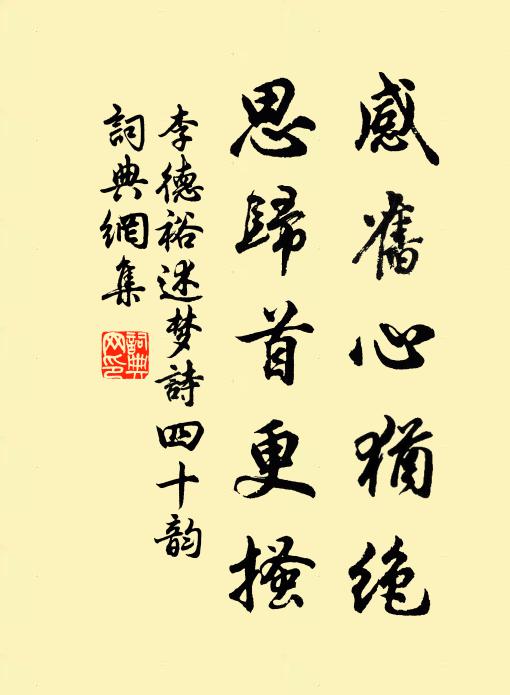 感舊心猶絶
思歸首更搔
李德裕述梦詩四十韵
詞典網集
詞典
网印